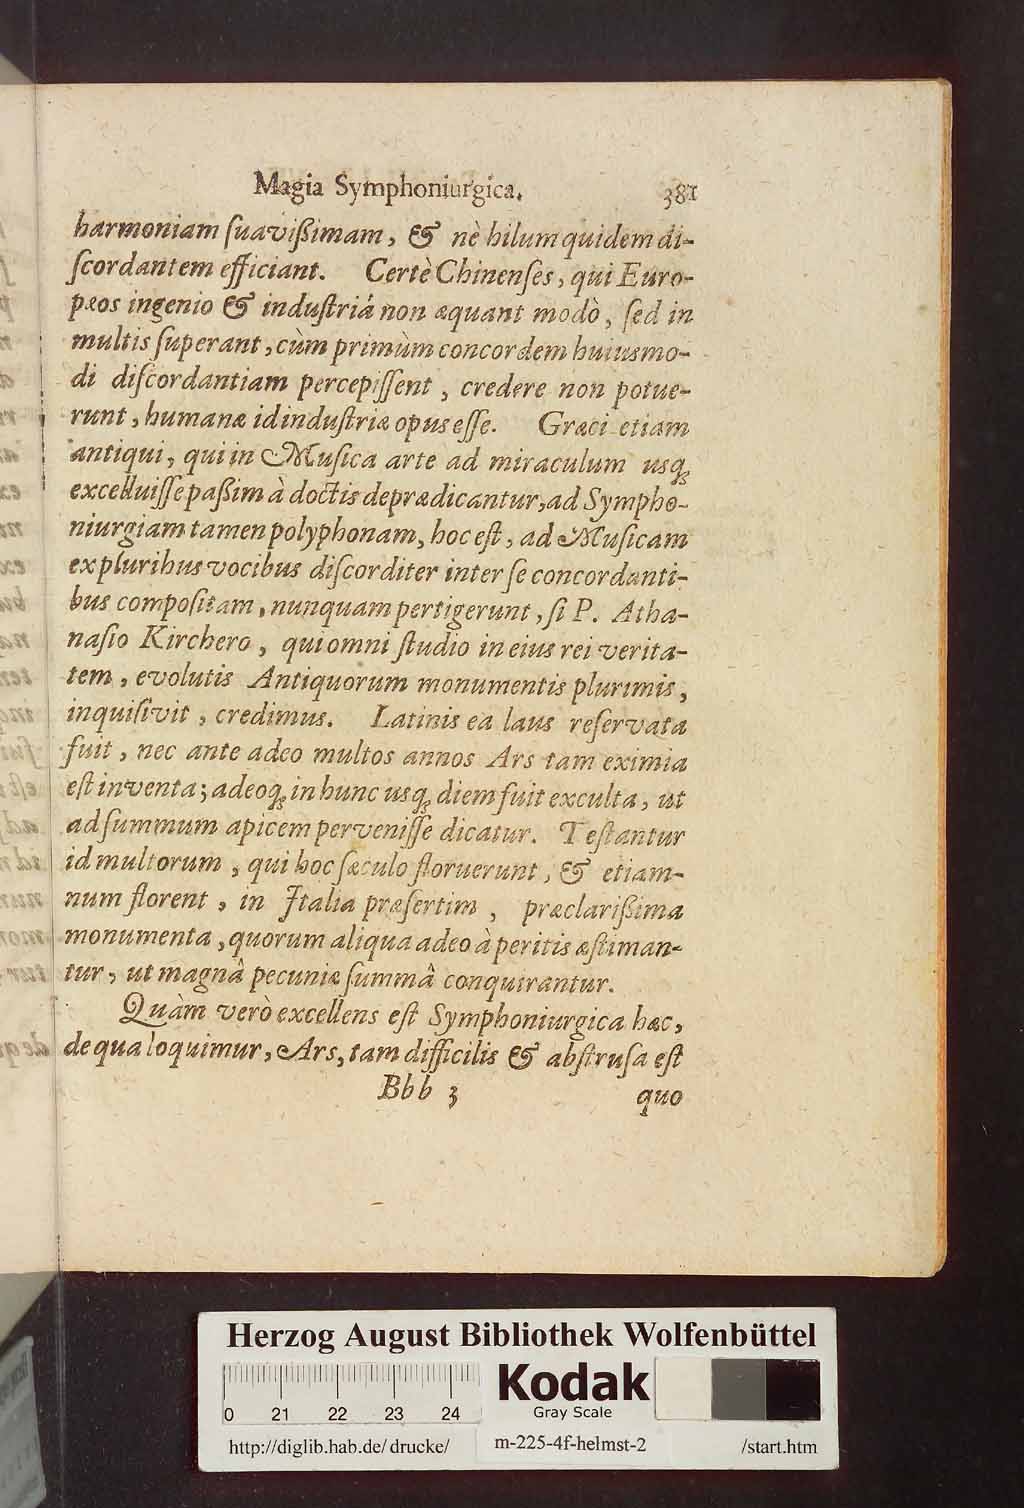 Magia Symphoniurgica. 381
harmoniam ſuaviſſimam, & nè hilum quidem di-
ſcordantem efficiant. Certè Chinenſes, qui Euro-
pæos ingenio & induſtriâ non æquant modò, ſed in
multis ſuperant, cùm primùm concordem huiusmo-
di diſcordantiam percepiſſent, credere non potue-
runt, humanæ id induſtriæ opus eſſe. Græci etiam
antiqui, qui in Muſica arte ad miraculum usq;
excelluiſſe paßim à doctis deprædicantur, ad Sympho-
niurgiam tamen polyphonam, hoc eſt, ad Muſicam
ex pluribus vocibus diſcorditer inter ſe concordanti-
bus compoſitam, nunquam pertigerunt, ſi P. Atha-
naſio Kirchero, qui omni ſtudio in eius rei verita-
tem, evolutis Antiquorum monumentis plurimis,
inquiſivit, credimus. Latinis ea laus reſervata
fuit, nec ante adeo multos annos Ars tam eximia
eſt inventa; adeoq; in hunc usq; diem fuit exculta, ut
ad ſummum apicem perveniſſe dicatur. Teſtantur
id multorum, qui hoc ſæculo floruerunt, & etiam-
num florent, in Italia præſertim, præclarißima
monumenta, quorum aliqua adeo à peritis æſtiman-
tur, ut magnâ pecuniæ ſummâ conquirantur.
Quàm verò excellens eſt Symphoniurgica hæc,
de qua loquimur, Ars, tam difficilis & abſtruſa eſt
Bbb 3 quo
Herzog August Bibliothek Wolfenbüttel
0 21 22 23 24
Kodak
Gray Scale
http://diglib.hab.de/drucke/ m-225-4f-helmst-2 /start.htm